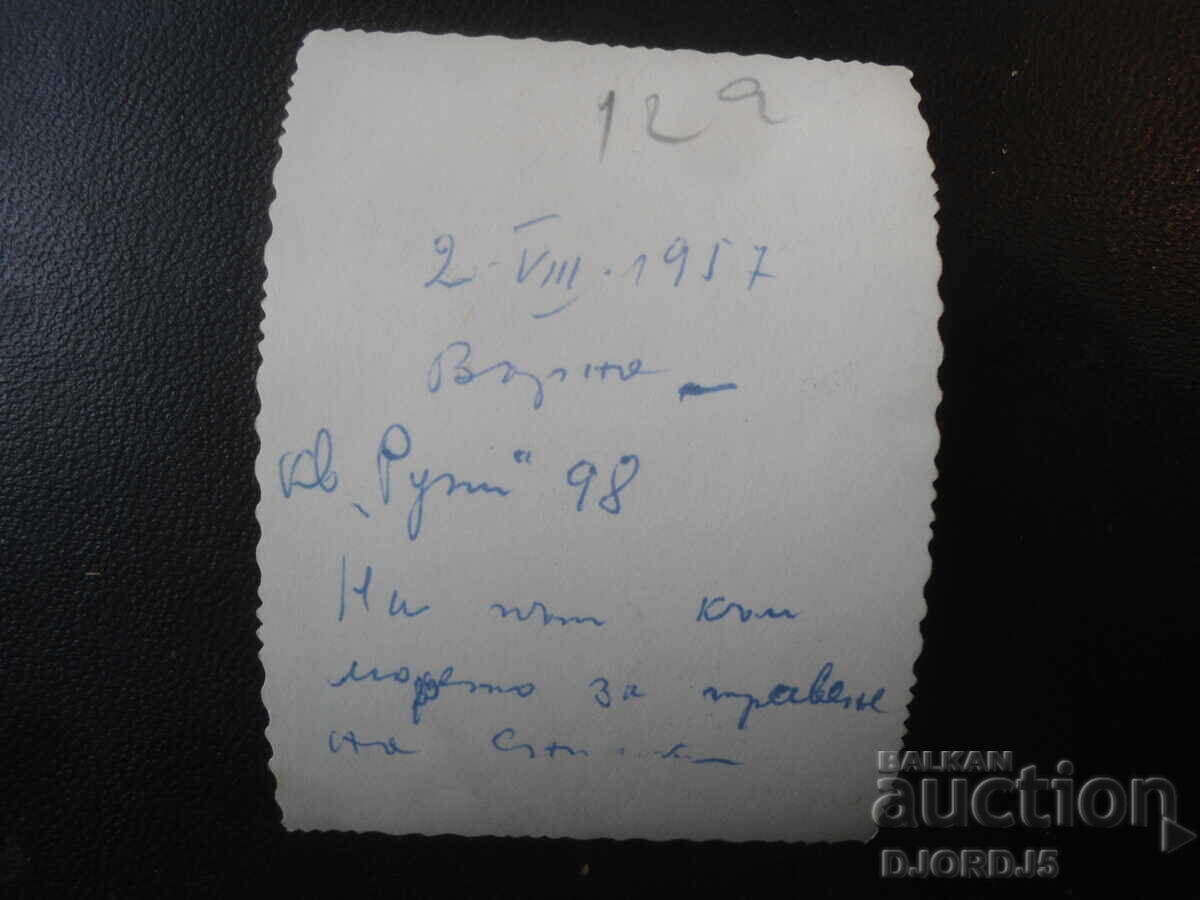 12 a
2 · VIII · 1957
Варна –
кв „Руни“ 98
На път към
морето за правене
на снимки
BALKAN
auction
DJORDJ5